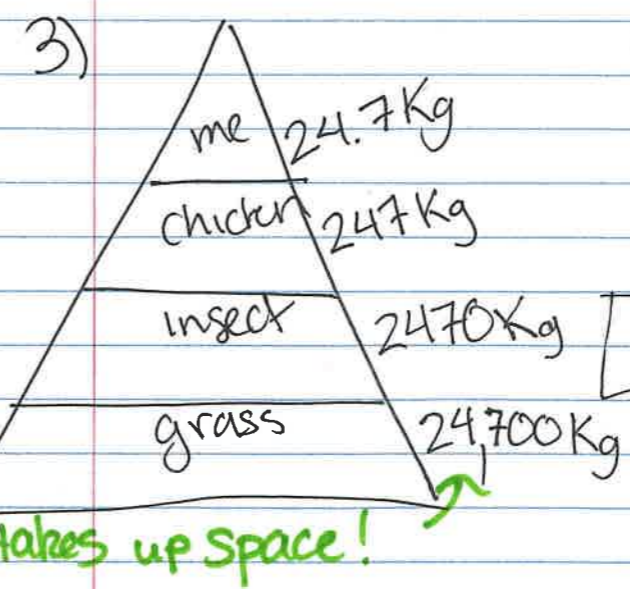 3)
me 24.7Kg
chicken 247Kg
insect 2470Kg
grass 24,700Kg
takes up space!